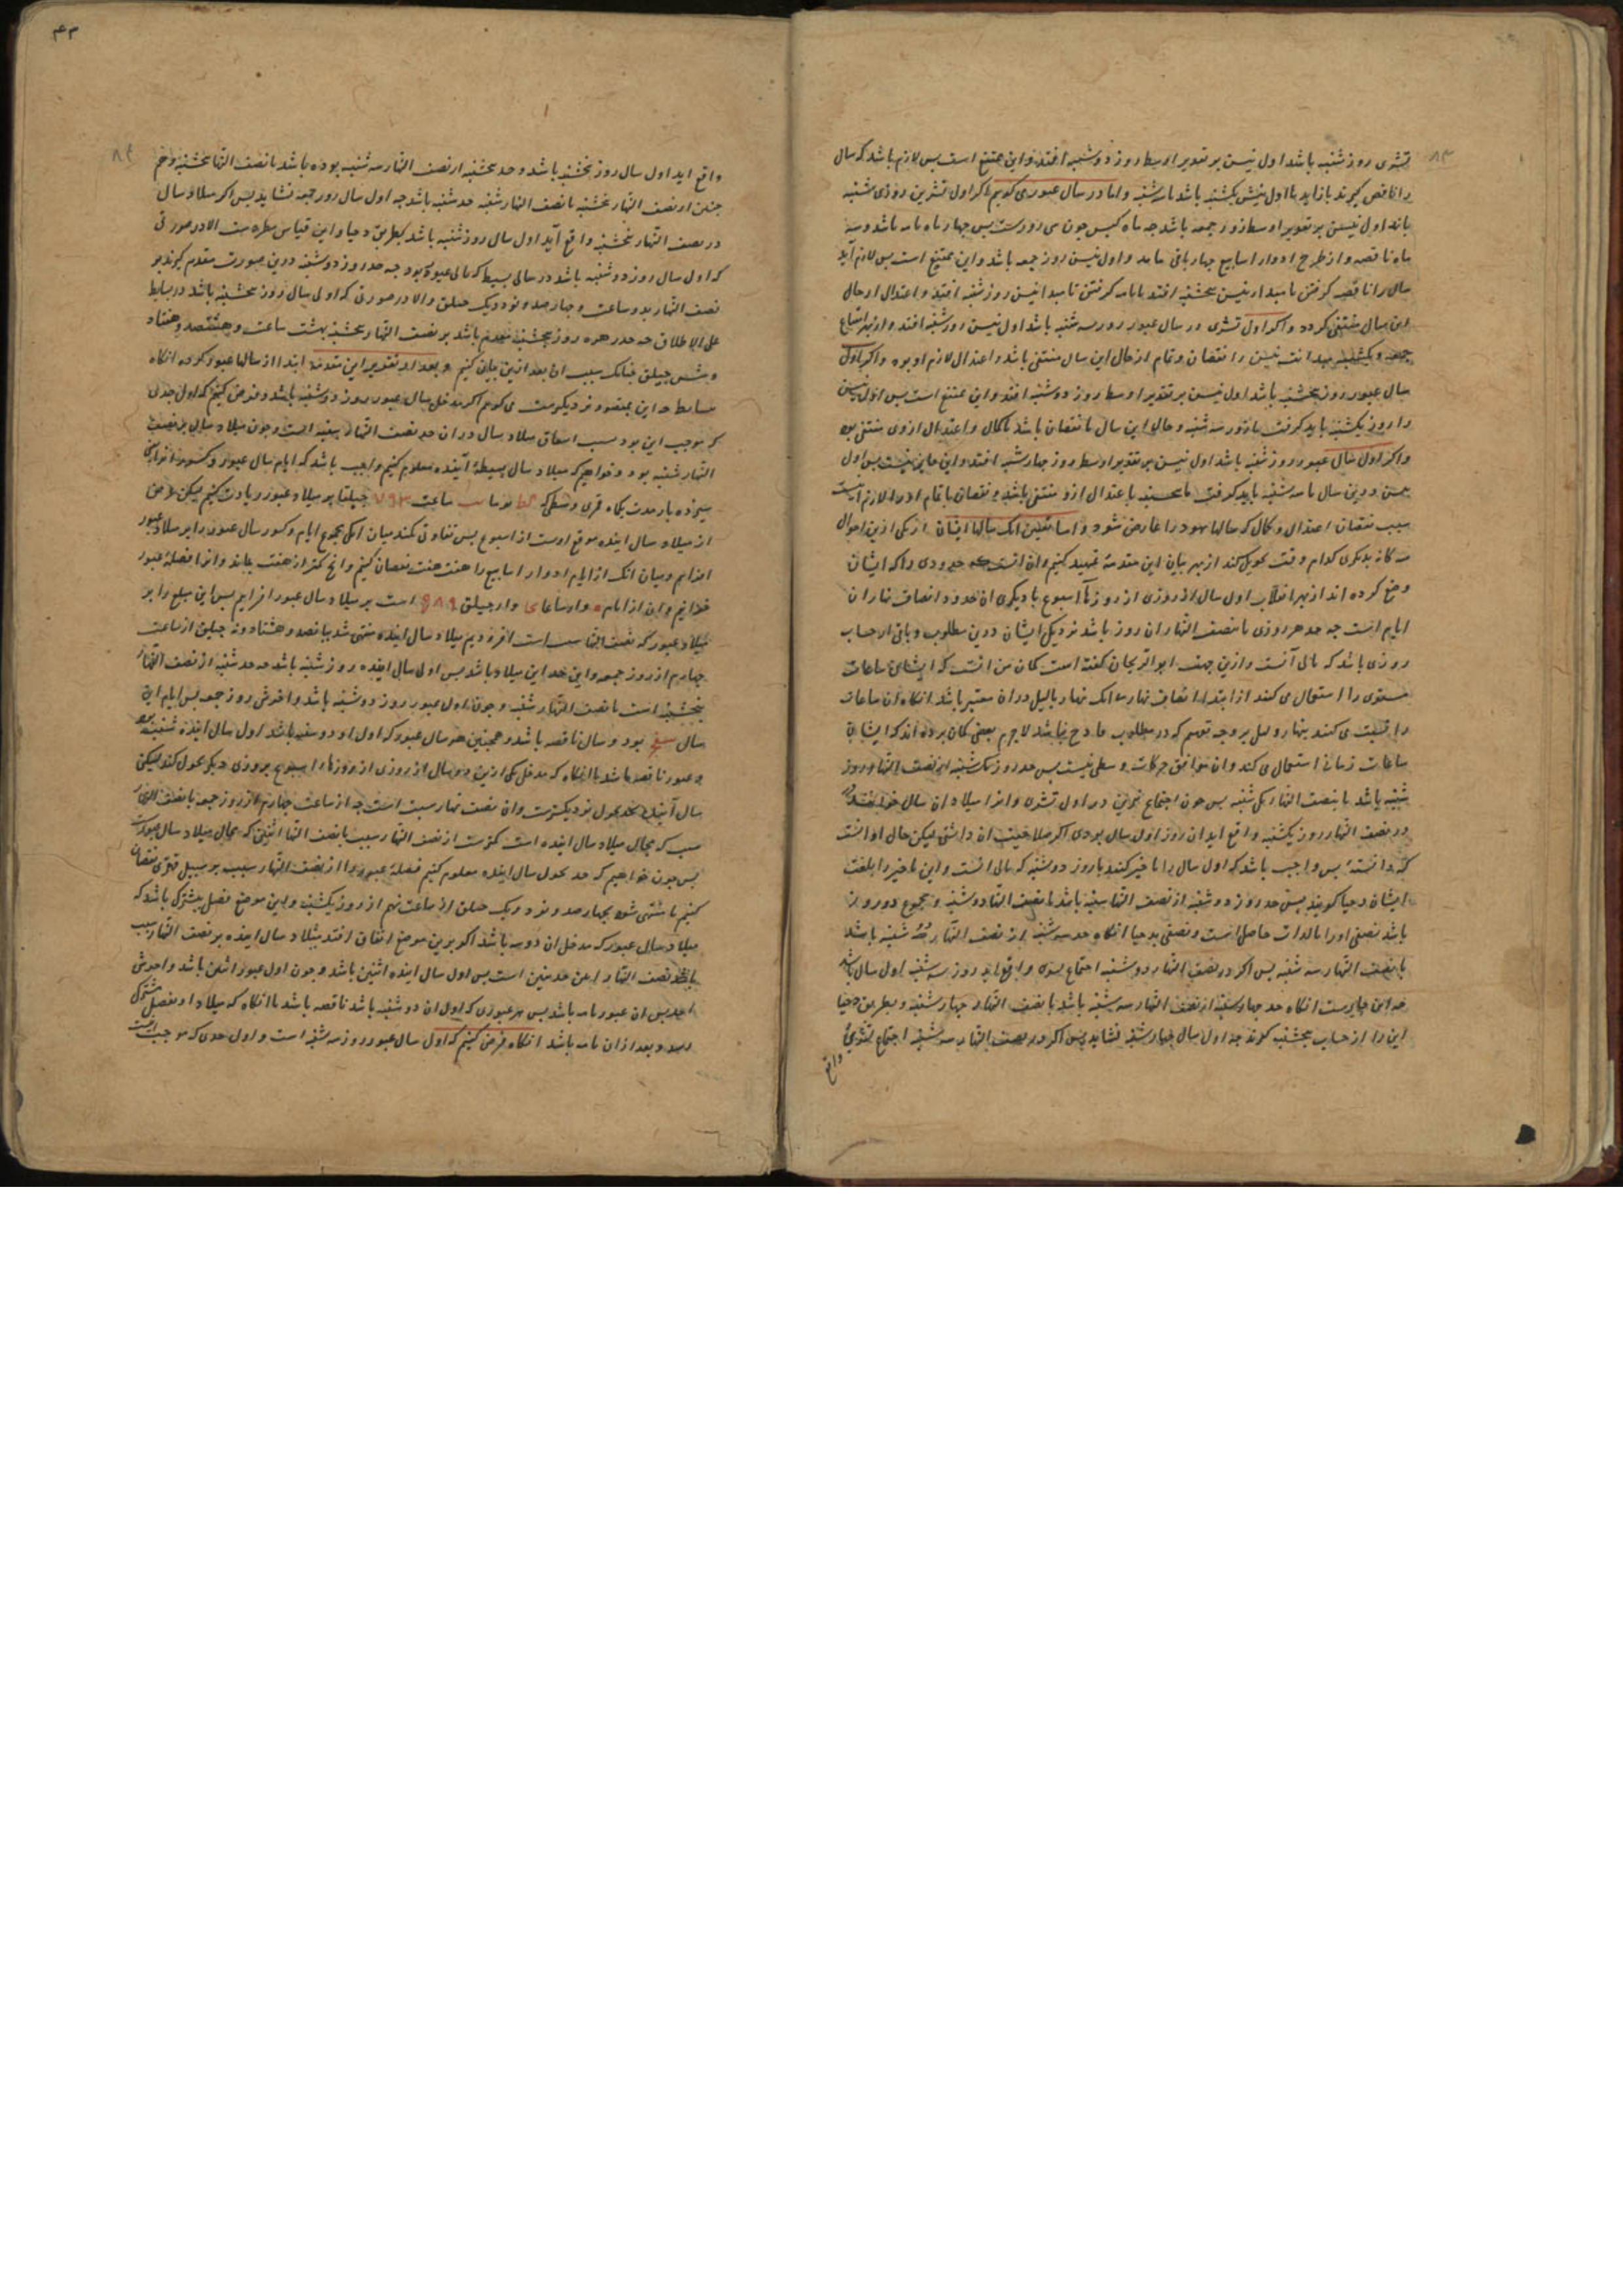 ۸۳
تشری روز شنبه باشد اول نیسن بر تقدیر اوسط روز دوشنبه افتد و این ممتنع است پس لازم باشد که سال
را ناقص گیرند یا زاید تا اول نیسن یکشنبه باشد یا سه شنبه و اما در سال عبور می کوییم اکر اول تشرین روزی شنبه
باشد اول نیسن بر تقدیر اوسط روز جمعه باشد چه ماه کبس چون سی روزست پس چهار ماه تامه باشد و سه
ماه ناقصه و از طرح ادوار اسابیع چهار باقی ماند و اول نیسن روز جمعه باشد و این ممتنع است پس لازم آید
سال را ناقصه کرفتن تا مبدا نیسن پنجشنبه افتد یا تامه کرفتن تا مبدا نیسن روز شنبه افتد و اعتدال از حال
این سال منتفی کردد و اکر اول تشری در سال عبور روز سه شنبه باشد اول نیسن روز شنبه افتد و از بهر امتناع
جمعه و یکشنبه مبدائیت نیسن را نقصان و تمام از حال این سال منتفی باشد و اعتدال لازم او بود و اکر اول
سال عبور روز پنجشنبه باشد اول نیسن بر تقدیر اوسط روز دوشنبه افتد و این ممتنع است پس اول نیسن
را روز یکشنبه باید کرفت یا روز سه شنبه و حال این سال یا نقصان باشد یا کمال و اعتدال ازوی منتفی بود
واکر اول سال عبور روز شنبه باشد اول نیسن بر تقدیر اوسط روز چهارشنبه افتد و این جایز نیست پس اول
نیسن درین سال یا سه شنبه باید کرفت یا پنجشنبه یا اعتدال ازو منتفی باشد و نقصان یا تمام او را لازم اینست
سبب نقصان و اعتدال و کمال که سالها یهود را عارض شود و اما تعیین انک سالها ایشان از یکی ازین احوال
سه کانه بدیکری کدام وقت تحویل کند از بهر بیان این مقدمهٔ تمهید کنیم و ان انست که حدودی را که ایشان
وضع کرده اند از بهر انقلاب اول سال از روزی از روزهاء اسبوع با دیکری ان حدود انصاف نهار ان
ایام است چه حد هر روزی تا نصف النهار ان روز باشد نزدیک ایشان درین مطلوب و باقی از حساب
روزی باشد که تالی آنست و ازین جهت ابو الریحان کفته است کمان من انست که ایشان ساعات
مستوی را استعمال می کنند از ابتداء انصاف نهار
را قسمت می کنند بنهار و لیل بر وجه تقسیم که در مطلوب قادح نباشد لاجرم بعضی کمان برده اند که ایشان
ساعات زمانی استعمال می کنند و ان موافق حرکات وسطی نیست پس حد روز یکشنبه از نصف النهار روز
شنبه باشد تا نصف النهار یکشنبه پس چون اجتماع نیرین در اول تشری و انرا میلاد ان سال خوانند
در نصف النهار روز یکشنبه واقع اید ان روز اول سال بودی اکر صلاحیت ان داشتی لیکن حال او انست
که دانستهٔ پس واجب باشد که اول سال را تاخیر کنند با روز دوشنبه که تالی انست و این تاخیر را بلغت
ایشان دحیا کویند پس حد روز دوشنبه از نصف النهار شنبه باشد تا نصف النهار دوشنبه و مجموع دو روز
باشد نصفی او را بالذات حاصل است و نصفی بدحیا انکاه حد سه شنبه از نصف النهار دوشنبه باشد
تا نصف النهار سه شنبه پس اکر در نصف النهار دوشنبه اجتماع تشری واقع اید روز سه شنبه اول سال باشد
چه این جایزست انکاه حد چهارشنبه از نصف النهار سه شنبه باشد تا نصف النهار چهارشنبه و بطریق دحیا
این را از حساب پنجشنبه کیرند چه اول سال چهارشنبه نشاید پس اکر در نصف النهار سه شنبه اجتماع تشری
واقع
۴۳
۸۴
واقع اید اول سال روز پنجشنبه باشد و حد پنجشنبه از نصف النهار سه شنبه بوده باشد تا نصف النهار پنجشنبه و هم
چنین از نصف النهار پنجشنبه تا نصف النهار شنبه حد شنبه باشد چه اول سال روز جمعه نشاید پس اکر میلاد سال
در نصف النهار پنجشنبه واقع آید اول سال روز شنبه باشد بطریق دحیا و این قیاس مطردست الا در صورتی
که اول سال روز دوشنبه باشد در سالی بسیط که تالی عبور بود چه حد روز دوشنبه درین صورت مقدم کیرند بر
نصف النهار بدو ساعت و چهارصد و نود و یک حیلق والا در صورتی که اول سال روز سه شنبه باشد در بسایط
علی الاطلاق چه حد هر ده روز پنجشنبه مقدم باشد بر نصف النهار سه شنبه بهشت ساعت و هشتصد و هفتاد
و شش حیلق چنانک سبب ان بعد ازین بیان کنیم و بعد از تقدیر این مقدمه ابتدا از سالها عبور کرده انکاه
بسایط چه این بمقصود نزدیکترست می کویم اکر مدخل سال عبور روز دوشنبه باشد و فرض کنیم که اول حدی
که موجب این بود سبب استحقاق میلاد سال در ان حد نصف النهار شنبه است و چون میلاد سال بر نصف
النهار شنبه بود و خواهیم که میلاد سال بسیطهٔ آینده معلوم کنیم واجب باشد که ایام سال عبور و کسور
سیزده بار مدت یکماه قمری وسطی که ساعت ۷۹۳ حیلقا بر میلاد عبور زیادت کنیم لیکن غرض
از میلاد سال اینده موقع اوست از اسبوع پس تفاوتی نکند میان انک مجموع ایام و کسور سال عبور را بر میلاد عبور
افزایم و میان انک از ایام ادوار اسابیع را هفت هفت نقصان کنیم و انچ کمتر از هفت بماند و انرا فضلهٔ عبور
خوانیم و ان از ایام ه و از ساعات و از حیلق ۵۸۹ است بر میلاد سال عبور افزایم پس این مبلغ را بر
میلاد عبور که نصف النهار سبت است افزودیم میلاد سال اینده منتهی شد بپانصد و هشتاد و نه حیلق از ساعت
چهارم از روز جمعه و این حد این میلاد باشد پس اول سال اینده روز شنبه باشد چه حد شنبه از نصف النهار
پنجشنبه است تا نصف النهار شنبه و چون اول عبور روز دوشنبه باشد و اخرش روز جمعه پس ایام این
سال بود و سال ناقصه باشد و همچنین هر سال عبور که اول او دوشنبه باشد اول سال اینده شنبه بود
و عبور ناقصه باشد تا انکاه که مدخل یکی ازین دو سال از روزی از روزهاء اسبوع بروزی دیکر تحول کند لیکن
سال آینده بحد تحول نزدیکترست و ان نصف نهار سبت است چه از ساعت چهارم از روز جمعه تا نصف النهار
سبت که مجال میلاد سال اینده است کمترست از نصف النهار سبت تا نصف النهار اثنین که مجال میلاد سال عبورست
پس چون خواهیم که حد تحول سال اینده معلوم کنیم فضلهٔ عبور را از نصف النهار سبت بر سبیل قهقری نقصان
کنیم تا منتهی شود بچهارصد و نود و یک حیلق از ساعت نهم از روز یکشنبه و این موضع فصل مشترک باشد که
میلاد سال عبور که مدخل ان دوشنبه باشد اکر برین موضع اتفاق افتد میلاد سال اینده بر نصف النهار سبت
باشد نصف النهار اعنی حد اثنین است پس اول سال اینده اثنین باشد و چون اول عبور اثنین باشد و اخرش
احد پس ان عبور تامه باشد پس هر عبوری که اول ان دوشنبه باشد ناقصه باشد تا انکاه که میلاد او بفصل مشترک
رسد و بعد از ان تامه باشد انکاه فرض کنیم که اول سال عبور روز سه شنبه است و اول حدی که موجب اینست